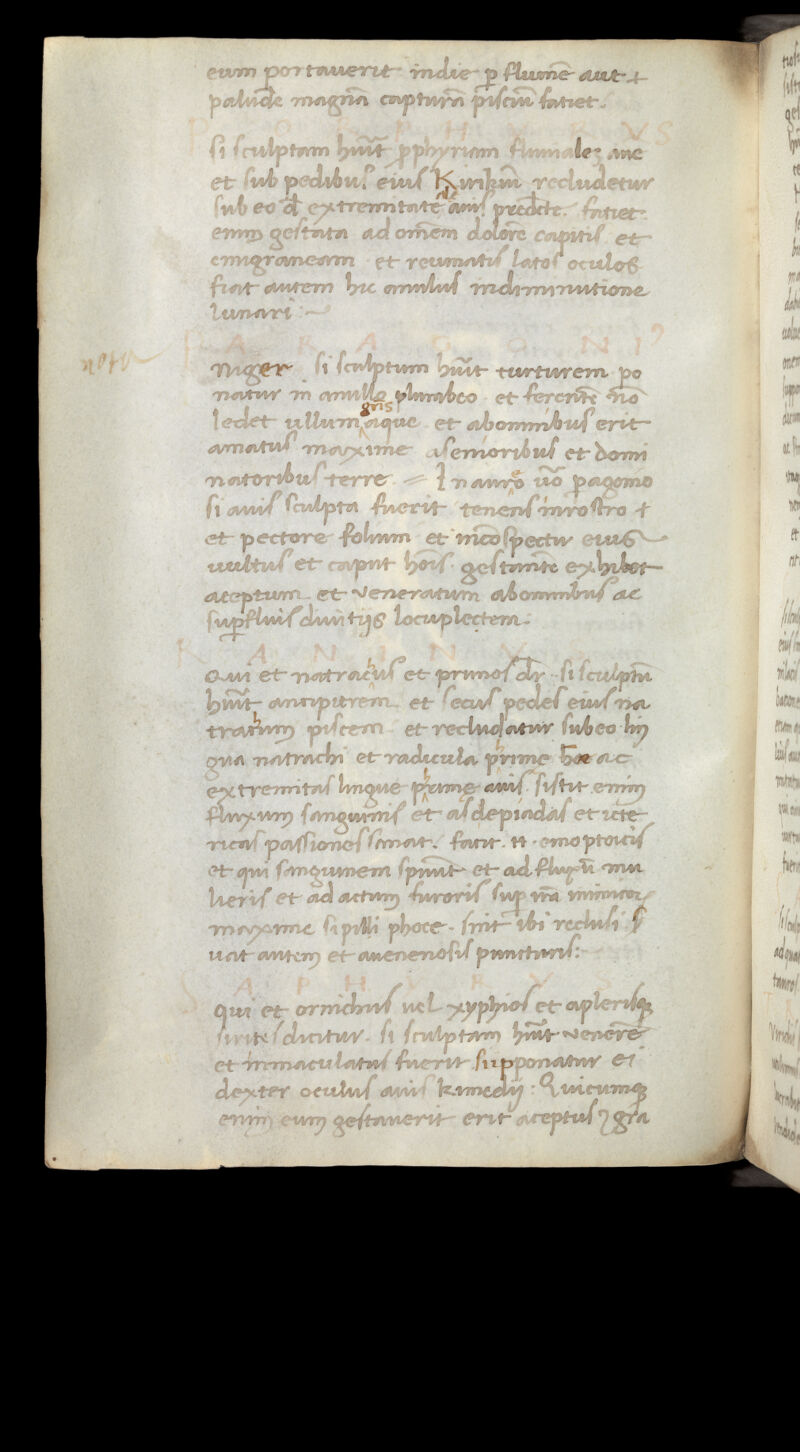 eum portauerit in die ꝑ flumē aut ł
palude magnā capturā pisciū faciet.
P O R P H Y R V S
si sculptam hīut porphyriam fluuialeʒ aue
et sub pedibus eius recludetur
sub eo extremitate aut p̄cedēte. faciet.
enim gestata ad omēm dolorē capitis et
emigraneam et reumatis latos oculos
fiat autem hic anulus in diminutione
lunari
P A R A G O N I ꝰ
nota
Niger si sculptum hīut turturem po
natur in anullo plumbeo et ferentē nō
ledet ullum aque et abominibus erit
amatus maxime a senioribus et domi
natoribus terre. In auro ū̊o paragonio
si auis sculpta fuerit tenens in rostro ł
et pectore folium et in cōspectu eius
uultus et caput hoīs. gestantē exhibet
aceptum et veneratum abominibus ac
sup̱fluis diuitijs locupletem.
K A N I N V S
Qui et natrachus et prunos dr̄. si sculptū
hīut ancipitrem et secus pedes eius na
trachum piscem et recludatur sub eo lin
gua natrachi et radicula prime ac
extremitas lingue auis. sistit enim
fluxum sanguinis et asdepiadas et icte
ricas passiones sanat. facit emoptoicis
et qui sanguinem spuūt et ad fluxū mu
lieris et ad actum furoris
maxime si pilli phoce. sint ibi reclusi
uat autem et auenenosis puncturis:
S A P H Y R V S
Qui et ornichus uel xyphios et aplerisqꝫ
sirites dicitur. si sculptam hīut venerē
et inmaculatus fuerit supponatur ei
dexter oculus auis kimedij: Quicumqꝫ
enim eum gestauerit erit aceptus ⁊ gra